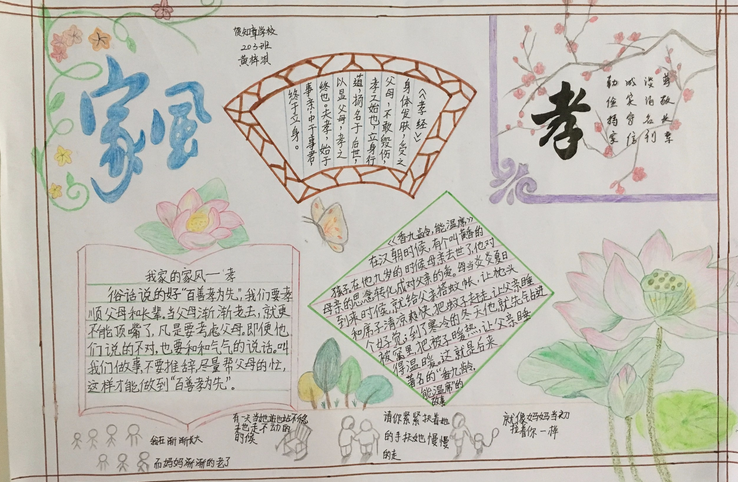 家风
贺知章学校
203班
《孝经》
身体发肤,受之
父母,不敢毁伤,
孝之始也,立身行
道,扬名于后世,
以显父母,孝之
终也。夫孝,始于
事亲,中于事君,
终于立身。
孝
尊敬长辈
淡泊名利
诚实守信
勤俭持家
我家的家风——孝
俗话说的好“百善孝为先”,我们要孝
顺父母和长辈。当父母渐渐老去,就更
不能顶嘴了,凡是要考虑父母。即便他
们说的不对,也要和和气气的说话。叫
我们做事不要推辞,尽量帮父母的忙,
这样才能做到“百善孝为先”。
《香九龄,能温席》
在汉朝时候,有个叫黄香的
孩子,在他九岁的时候母亲去世了,他对
母亲的思念转化成对父亲的爱。每当炎炎夏日
到来时候,就给父亲搭蚊帐,让枕头
和席子清凉爽快,把蚊子赶走,让父亲睡
个好觉;到了寒冷的冬天,他就先钻进
被窝里,把被子暖热,让父亲睡
得温暖。这就是后来
著名的“香九龄,
能温席”的
故事
会在渐渐长大
而妈妈渐渐的老了
的时候
请你紧紧扶着她
的手扶她慢慢
的走
就像妈妈当初
拉着你一样